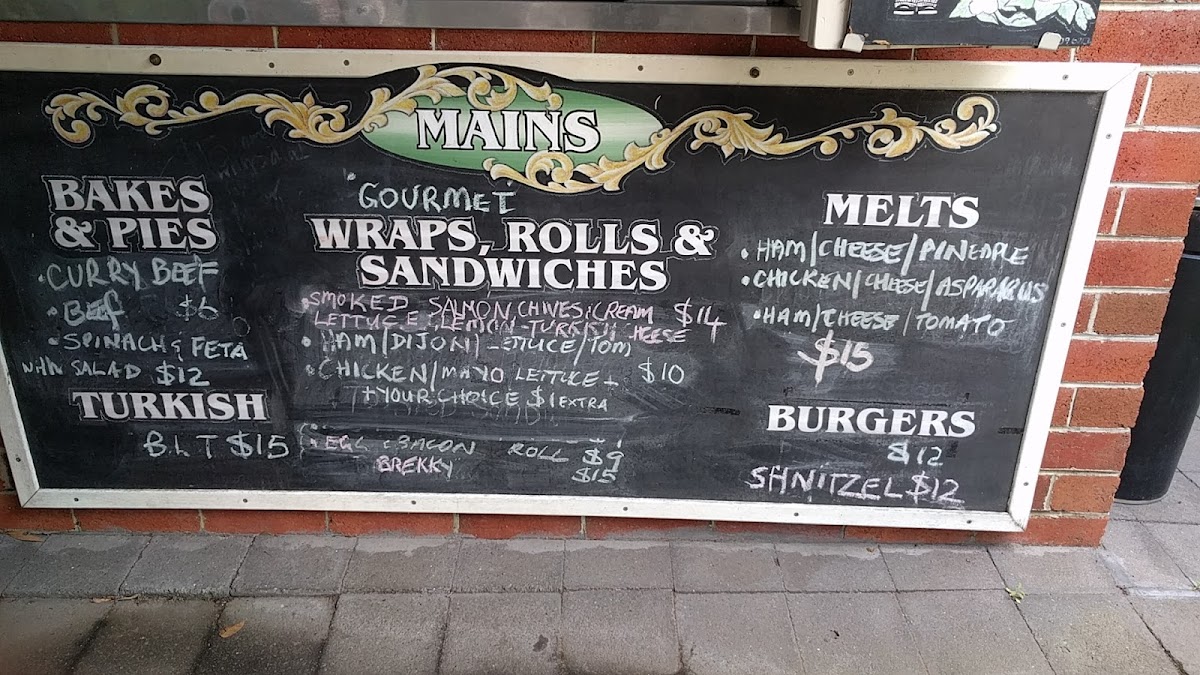 MAINS
BAKES
& PIES
CURRY BEEF
BEEF $6
SPINACH & FETA
WITH SALAD $12
TURKISH
B.L.T $15
GOURMET
WRAPS, ROLLS &
SANDWICHES
SMOKED SALMON, CHIVES, CREAM $14
LETTUCE LEMON-TURKISH CHEESE
HAM/DIJON/LETTUCE/TOM
CHICKEN/MAYO LETTUCE + $10
+ YOUR CHOICE $1 EXTRA
EGG & BACON ROLL $9
BREKKY $15
MELTS
HAM/CHEESE/PINEAPLE
CHICKEN/CHEESE/ASPARAGUS
HAM/CHEESE/TOMATO
$15
BURGERS
$12
SHNITZEL $12